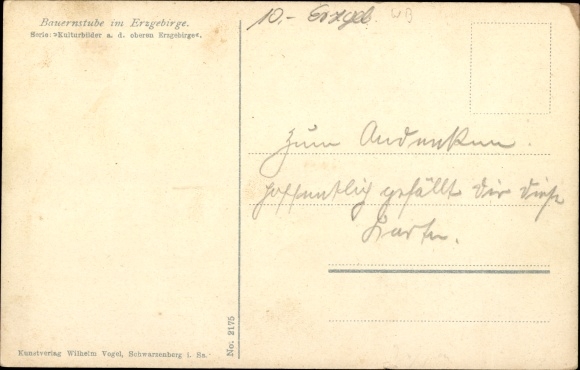 Bauernstube im Erzgebirge.
Serie: »Kulturbilder a. d. oberen Erzgebirge«.
10.- Erzgeb. WB
Zum Andenken.
Hoffentlich gefällt Dir diese
Karte.
No. 2175
Kunstverlag Wilhelm Vogel, Schwarzenberg i. Sa.